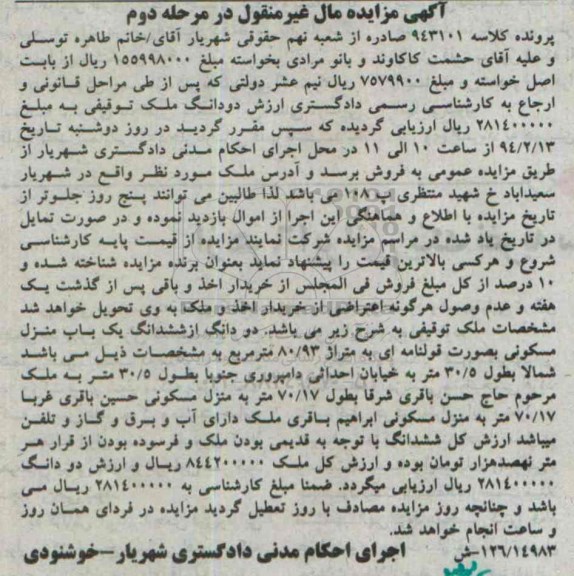 آگهی مزایده مال غیرمنقول در مرحله دوم
پرونده کلاسه ۹۴۳۱۰۱ صادره از شعبه نهم حقوقی شهریار آقای/خانم طاهره توسلی
و علیه آقای حشمت کاکاوند و بانو مرادی بخواسته مبلغ ۱۵۵۹۹۸۰۰۰ ریال از بابت
اصل خواسته و مبلغ ۷۵۷۹۹۰۰ ریال نیم عشر دولتی که پس از طی مراحل قانونی و
ارجاع به کارشناسی رسمی دادگستری ارزش دودانگ ملک توقیفی به مبلغ
۲۸۱۴۰۰۰۰۰ ریال ارزیابی گردیده که سپس مقرر گردید در روز دوشنبه تاریخ
۹۴/۲/۱۳ از ساعت ۱۰ الی ۱۱ در محل اجرای احکام مدنی دادگستری شهریار از
طریق مزایده عمومی به فروش برسد و آدرس ملک مورد نظر واقع در شهریار
سعیداباد خ شهید منتظری پ ۱۰۸ می باشد لذا طالبین می توانند پنج روز جلوتر از
تاریخ مزایده با اطلاع و هماهنگی این اجرا از اموال بازدید نموده و در صورت تمایل
در تاریخ یاد شده در مراسم مزایده شرکت نمایند مزایده از قیمت پایه کارشناسی
شروع و هرکسی بالاترین قیمت را پیشنهاد نماید بعنوان برنده مزایده شناخته شده و
۱۰ درصد از کل مبلغ فروش فی المجلس از خریدار اخذ و باقی پس از گذشت یک
هفته و عدم وصول هرگونه اعتراضی از خریدار اخذ و ملک به وی تحویل خواهد شد
مشخصات ملک توقیفی به شرح زیر می باشد. دو دانگ ازششدانگ یک باب منزل
مسکونی بصورت قولنامه ای به متراژ ۸۰/۹۳ مترمربع به مشخصات ذیل می باشد
شمالا بطول ۳۰/۵ متر به خیابان احداثی دامپروری جنوبا بطول ۳۰/۵ متر به ملک
مرحوم حاج حسن باقری شرقا بطول ۷۰/۱۷ متر به منزل مسکونی حسین باقری غربا
۷۰/۱۷ متر به منزل مسکونی ابراهیم باقری ملک دارای آب و برق و گاز و تلفن
میباشد ارزش کل ششدانگ با توجه به قدیمی بودن ملک و فرسوده بودن از قرار هر
متر نهصدهزار تومان بوده و ارزش کل ملک ۸۴۴۲۰۰۰۰۰ ریال و ارزش دو دانگ
۲۸۱۴۰۰۰۰۰ ریال ارزیابی میگردد. ضمنا مبلغ کارشناسی به ۲۸۱۴۰۰۰۰۰ ریال می
باشد و چنانچه روز مزایده مصادف با روز تعطیل گردید مزایده در فردای همان روز
و ساعت انجام خواهد شد.
۱۲۶/۱۴۹۸۳-ش اجرای احکام مدنی دادگستری شهریار-خوشنودی